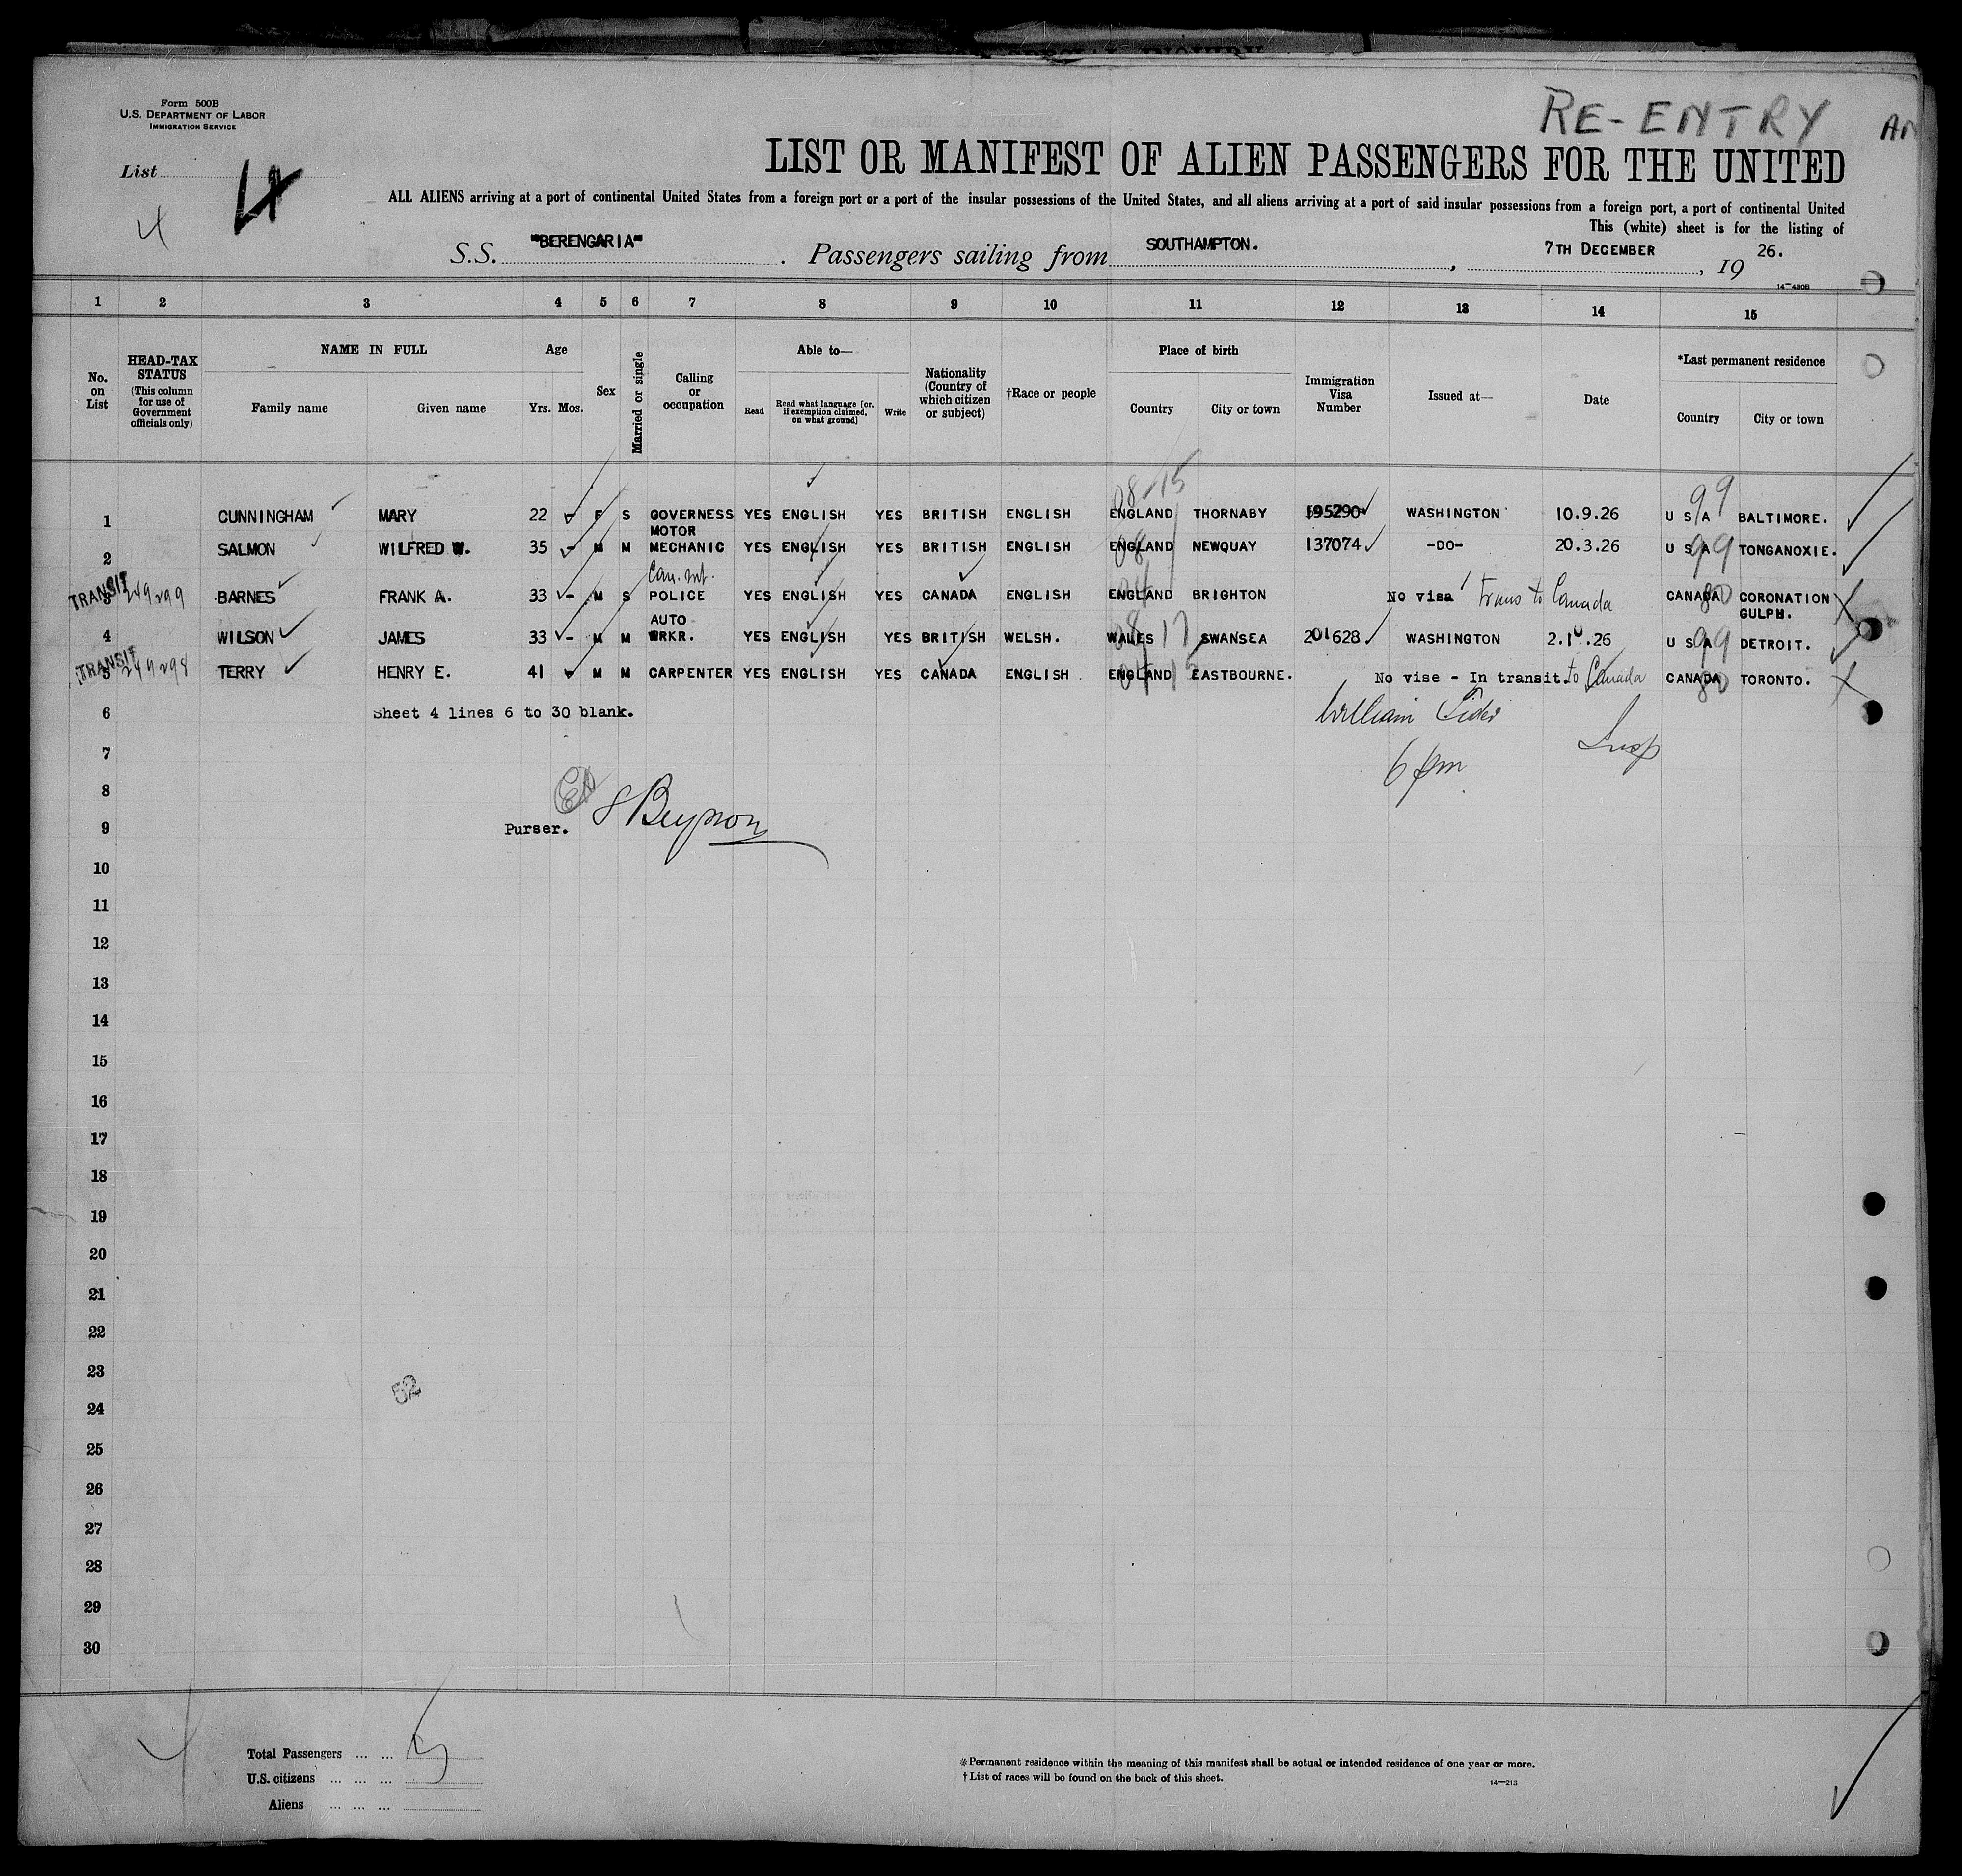 Form 500B
U.S. DEPARTMENT OF LABOR
IMMIGRATION SERVICE
RE-ENTRY
List 4
4
LIST OR MANIFEST OF ALIEN PASSENGERS FOR THE UNITED
ALL ALIENS arriving at a port of continental United States from a foreign port or a port of the insular possessions of the United States, and all aliens arriving at a port of said insular possessions from a foreign port, a port of continental United
This (white) sheet is for the listing of
S.S. "BERENGARIA". Passengers sailing from SOUTHAMPTON., 7TH DECEMBER, 19 26.
14—430B
1 2 3 4 5 6 7 8 9 10 11 12 13 14 15
No. on List
HEAD-TAX STATUS (This column for use of Government officials only)
NAME IN FULL
Family name Given name
Age
Yrs. Mos.
Sex
Married or single
Calling or occupation
Able to—
Read Read what language [or, if exemption claimed, on what ground] Write
Nationality (Country of which citizen or subject)
†Race or people
Place of birth
Country City or town
Immigration Visa Number
Issued at—
Date
*Last permanent residence
Country City or town
08-15 99
1 CUNNINGHAM MARY 22 - F S GOVERNESS YES ENGLISH YES BRITISH ENGLISH ENGLAND THORNABY 195290 WASHINGTON 10.9.26 U S A BALTIMORE.
2 SALMON WILFRED W. 35 - M M MOTOR MECHANIC YES ENGLISH YES BRITISH ENGLISH ENGLAND NEWQUAY 137074 -DO- 20.3.26 U S A 99 TONGANOXIE.
TRANSIT 3 249299 BARNES FRANK A. 33 - M S Can. mt. POLICE YES ENGLISH YES CANADA ENGLISH ENGLAND BRIGHTON No visa trans to Canada CANADA 80 CORONATION GULPH.
4 WILSON JAMES 33 - M M AUTO WRKR. YES ENGLISH YES BRITISH WELSH. WALES 17 SWANSEA 201628 WASHINGTON 2.10.26 U S A 99 DETROIT.
TRANSIT 5 249298 TERRY HENRY E. 41 - M M CARPENTER YES ENGLISH YES CANADA ENGLISH ENGLAND 15 EASTBOURNE. No vise - In transit. to Canada CANADA 80 TORONTO.
6 Sheet 4 lines 6 to 30 blank. William
7 Insp
6 pm
8
9 Purser.
10
11
12
13
14
15
16
17
18
19
20
21
22
23
52
24
25
26
27
28
29
30
Total Passengers ... ... 5
U.S. citizens ... ... ...
Aliens ... ... ...
*Permanent residence within the meaning of this manifest shall be actual or intended residence of one year or more.
†List of races will be found on the back of this sheet.
14—213